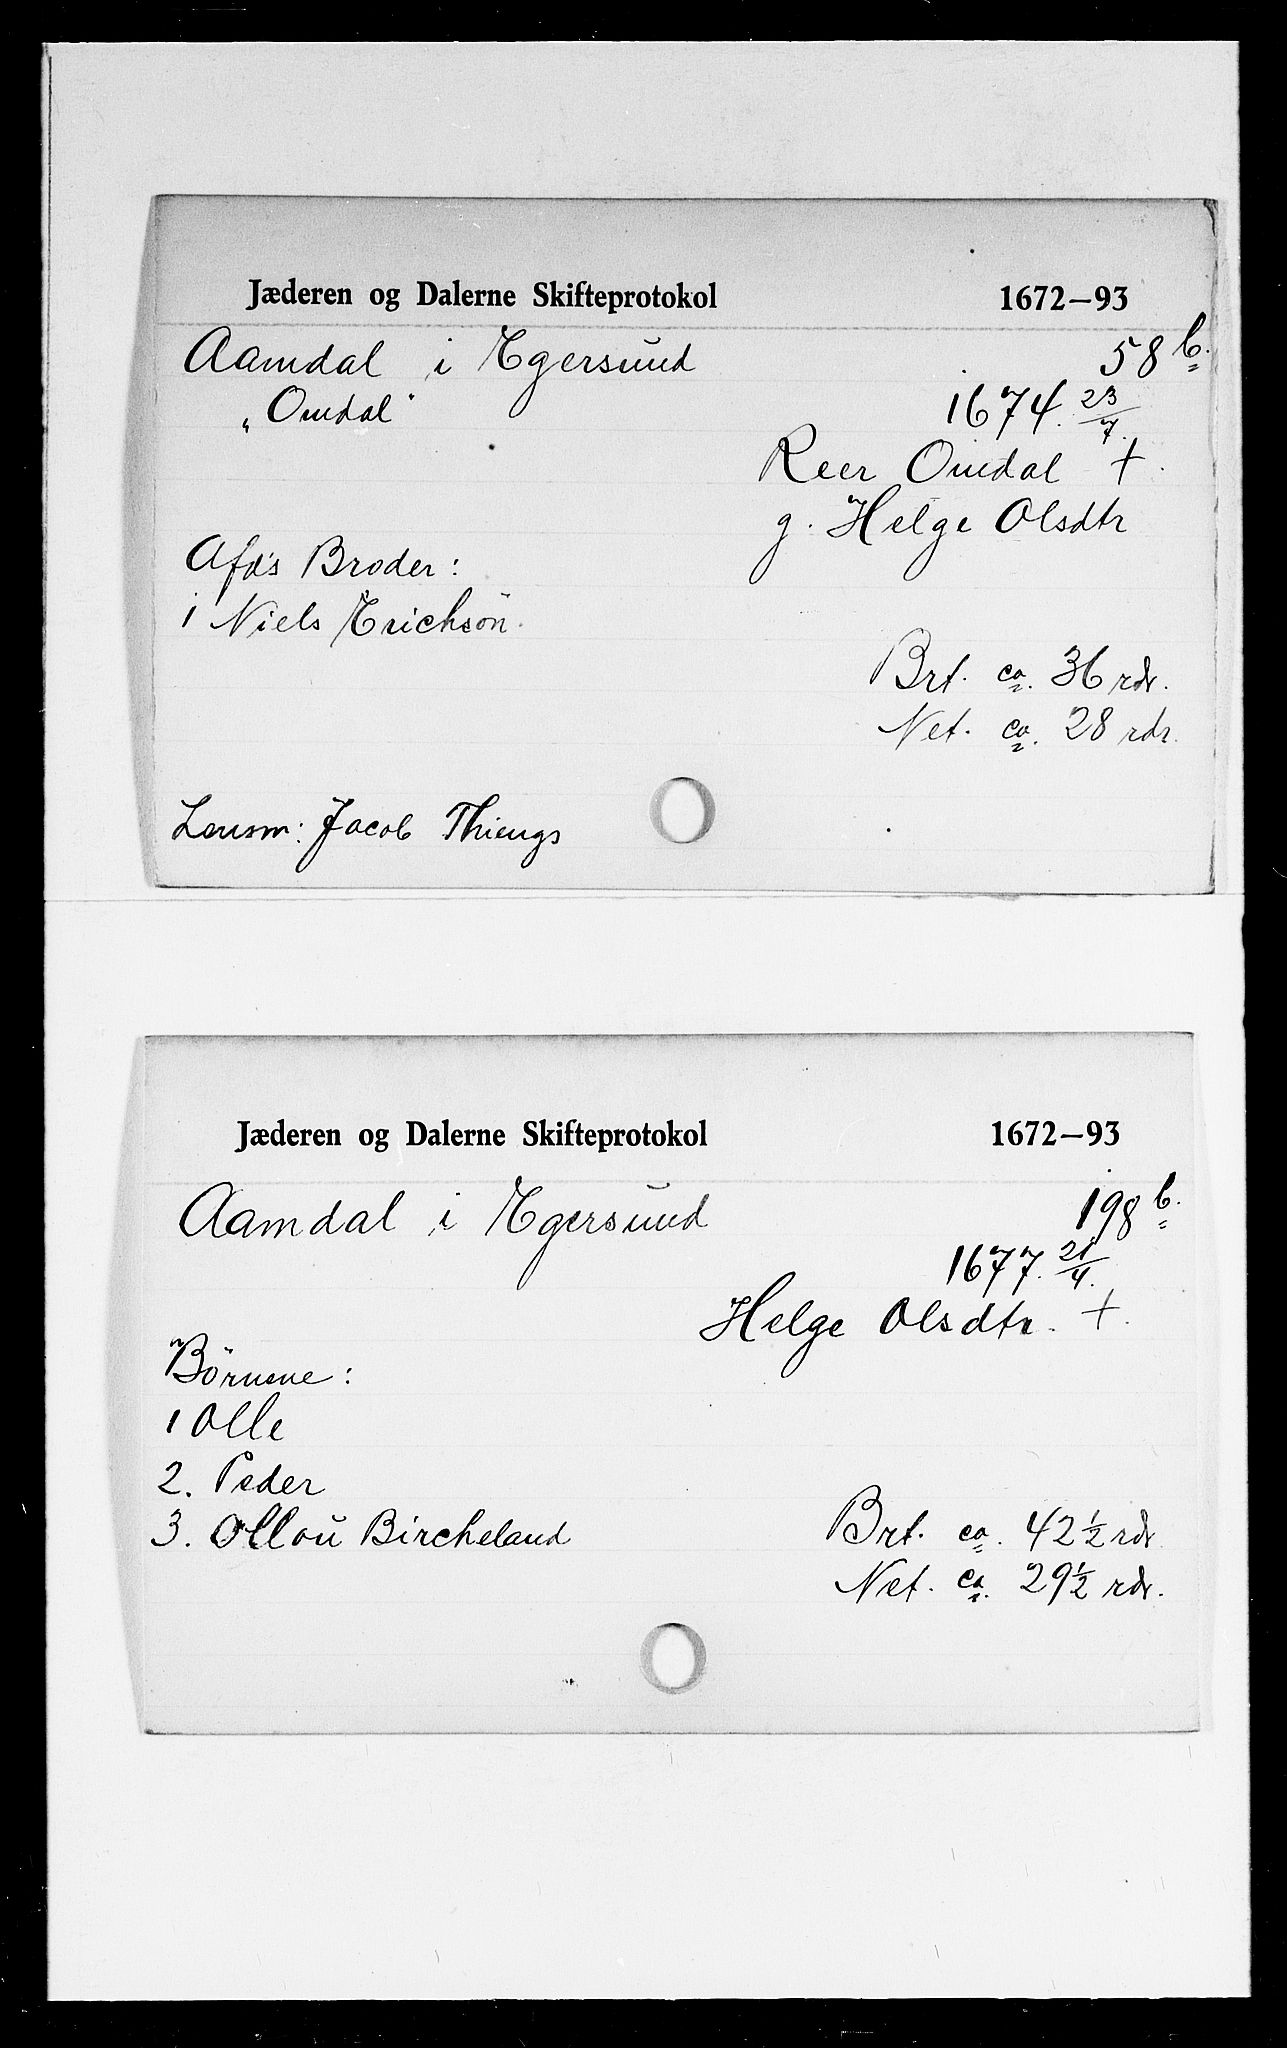 Jæderen og Dalerne Skifteprotokol 1672–93
Aamdal i Egersund 58 b.
„Omdal" 1674. 23/7.
Reer Omdal +
g. Helge Olsdtr
Afd's Broder:
1 Niels Erichsøn.
Brt. ca. 36 rdr.
Net. ca. 28 rdr.
Lensm: Jacob Thiengs
Jæderen og Dalerne Skifteprotokol 1672–93
Aamdal i Egersund 198 b.
1677. 21/4.
Helge Olsdtr. +.
Børnene:
1 Olle
2. Peder
3. Ollou Bircheland Brt. ca. 42 1/2 rdr
Net. ca. 29 1/2 rdr.